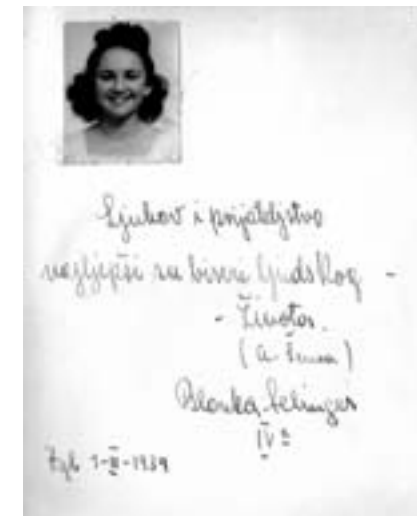 Ljubav i prijateljstvo
najljepši su biseri ljudskog -
- života.
(A. Šenoa)
Blanka
IV a
Zgb 1-II-1939